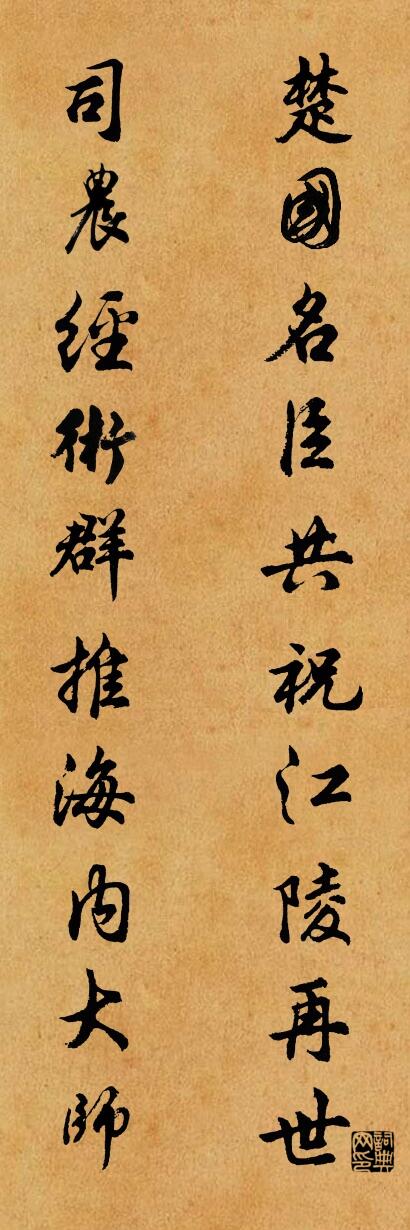 楚國名臣共祝江陵再世
司農經術群推海内大師
詞典网印